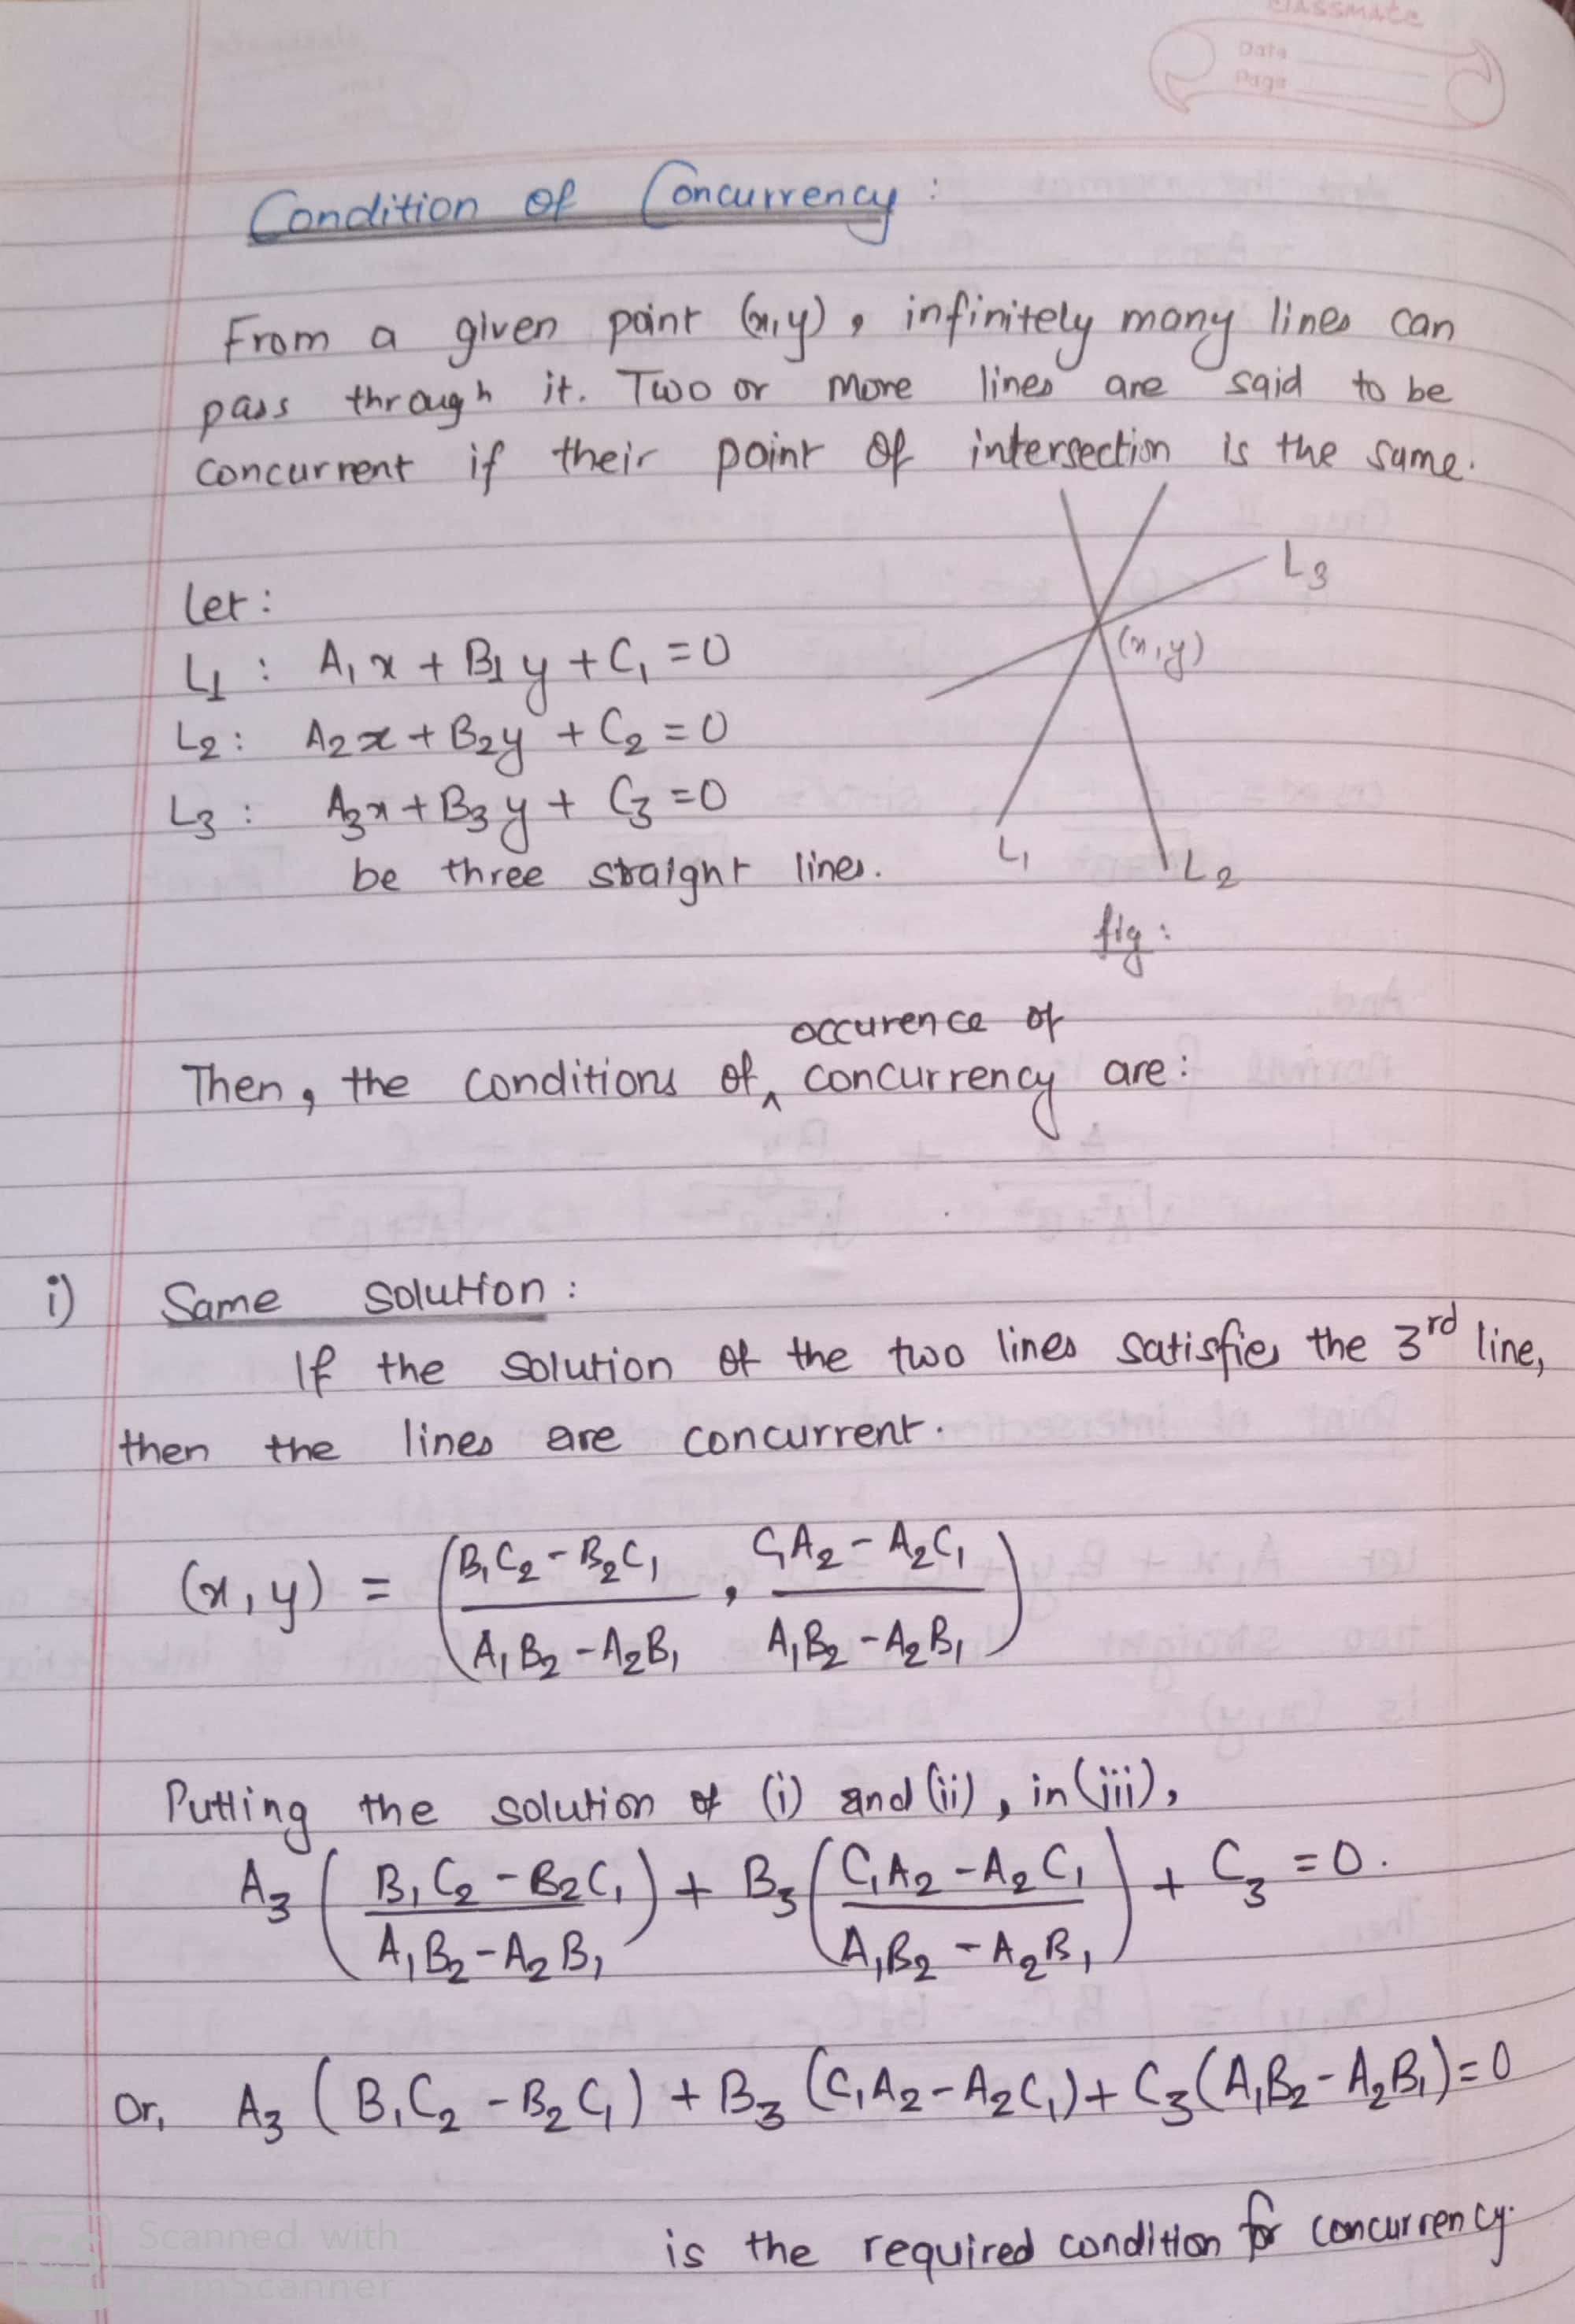 classmate
Date
Page
Condition of Concurrency :
From a given point (x,y), infinitely many lines can
pass through it. Two or more lines are said to be
concurrent if their point of intersection is the same.
Let :
L1 : A₁x + B₁y + C₁ = 0
L2 : A₂x + B₂y + C₂ = 0
L3 : A₃x + B₃y + C₃ = 0
be three straight lines.
L3
(x,y)
L1
L2
fig :
occurence of
Then, the conditions of ‸ concurrency are :
i) Same solution :
If the solution of the two lines satisfies the 3rd line,
then the lines are concurrent.
(x,y) = ( (B₁C₂ - B₂C₁)/(A₁B₂ - A₂B₁) , (C₁A₂ - A₂C₁)/(A₁B₂ - A₂B₁) )
Putting the solution of (i) and (ii), in (iii),
A₃ ( (B₁C₂ - B₂C₁)/(A₁B₂ - A₂B₁) ) + B₃ ( (C₁A₂ - A₂C₁)/(A₁B₂ - A₂B₁) ) + C₃ = 0.
Or, A₃ (B₁C₂ - B₂C₁) + B₃ (C₁A₂ - A₂C₁) + C₃ (A₁B₂ - A₂B₁) = 0
is the required condition for concurrency.
Scanned with
CamScanner